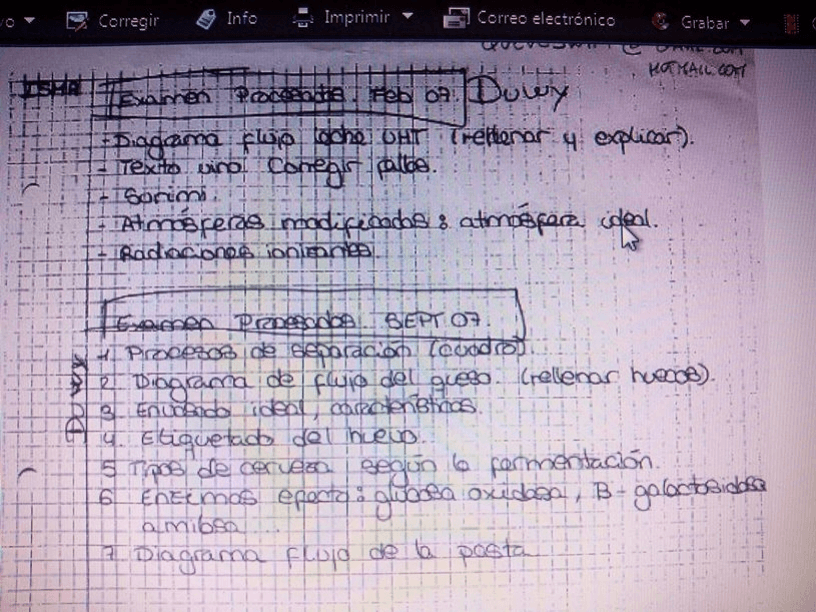 Corregir Info Imprimir Correo electrónico Grabar
HOTMAIL.COM
Examen Procesado. Feb 07.
- Diagrama flujo leche UHT (rellenar y explicar).
- Texto vino. Corregir fallos.
- Surimi.
- Atmósferas modificadas: atmósfera ideal.
- Radiaciones ionizantes.
Examen Procesados. SEPT 07.
1. Procesos de separación (cuadro).
2. Diagrama de flujo del queso. (rellenar huecos).
3. Envasado ideal, características.
4. Etiquetado del huevo.
5 Tipos de cerveza según la fermentación.
6 Enzimas efecto: glucosa oxidasa, B-galactosidasa
amilasa ...
7 Diagrama flujo de la pasta